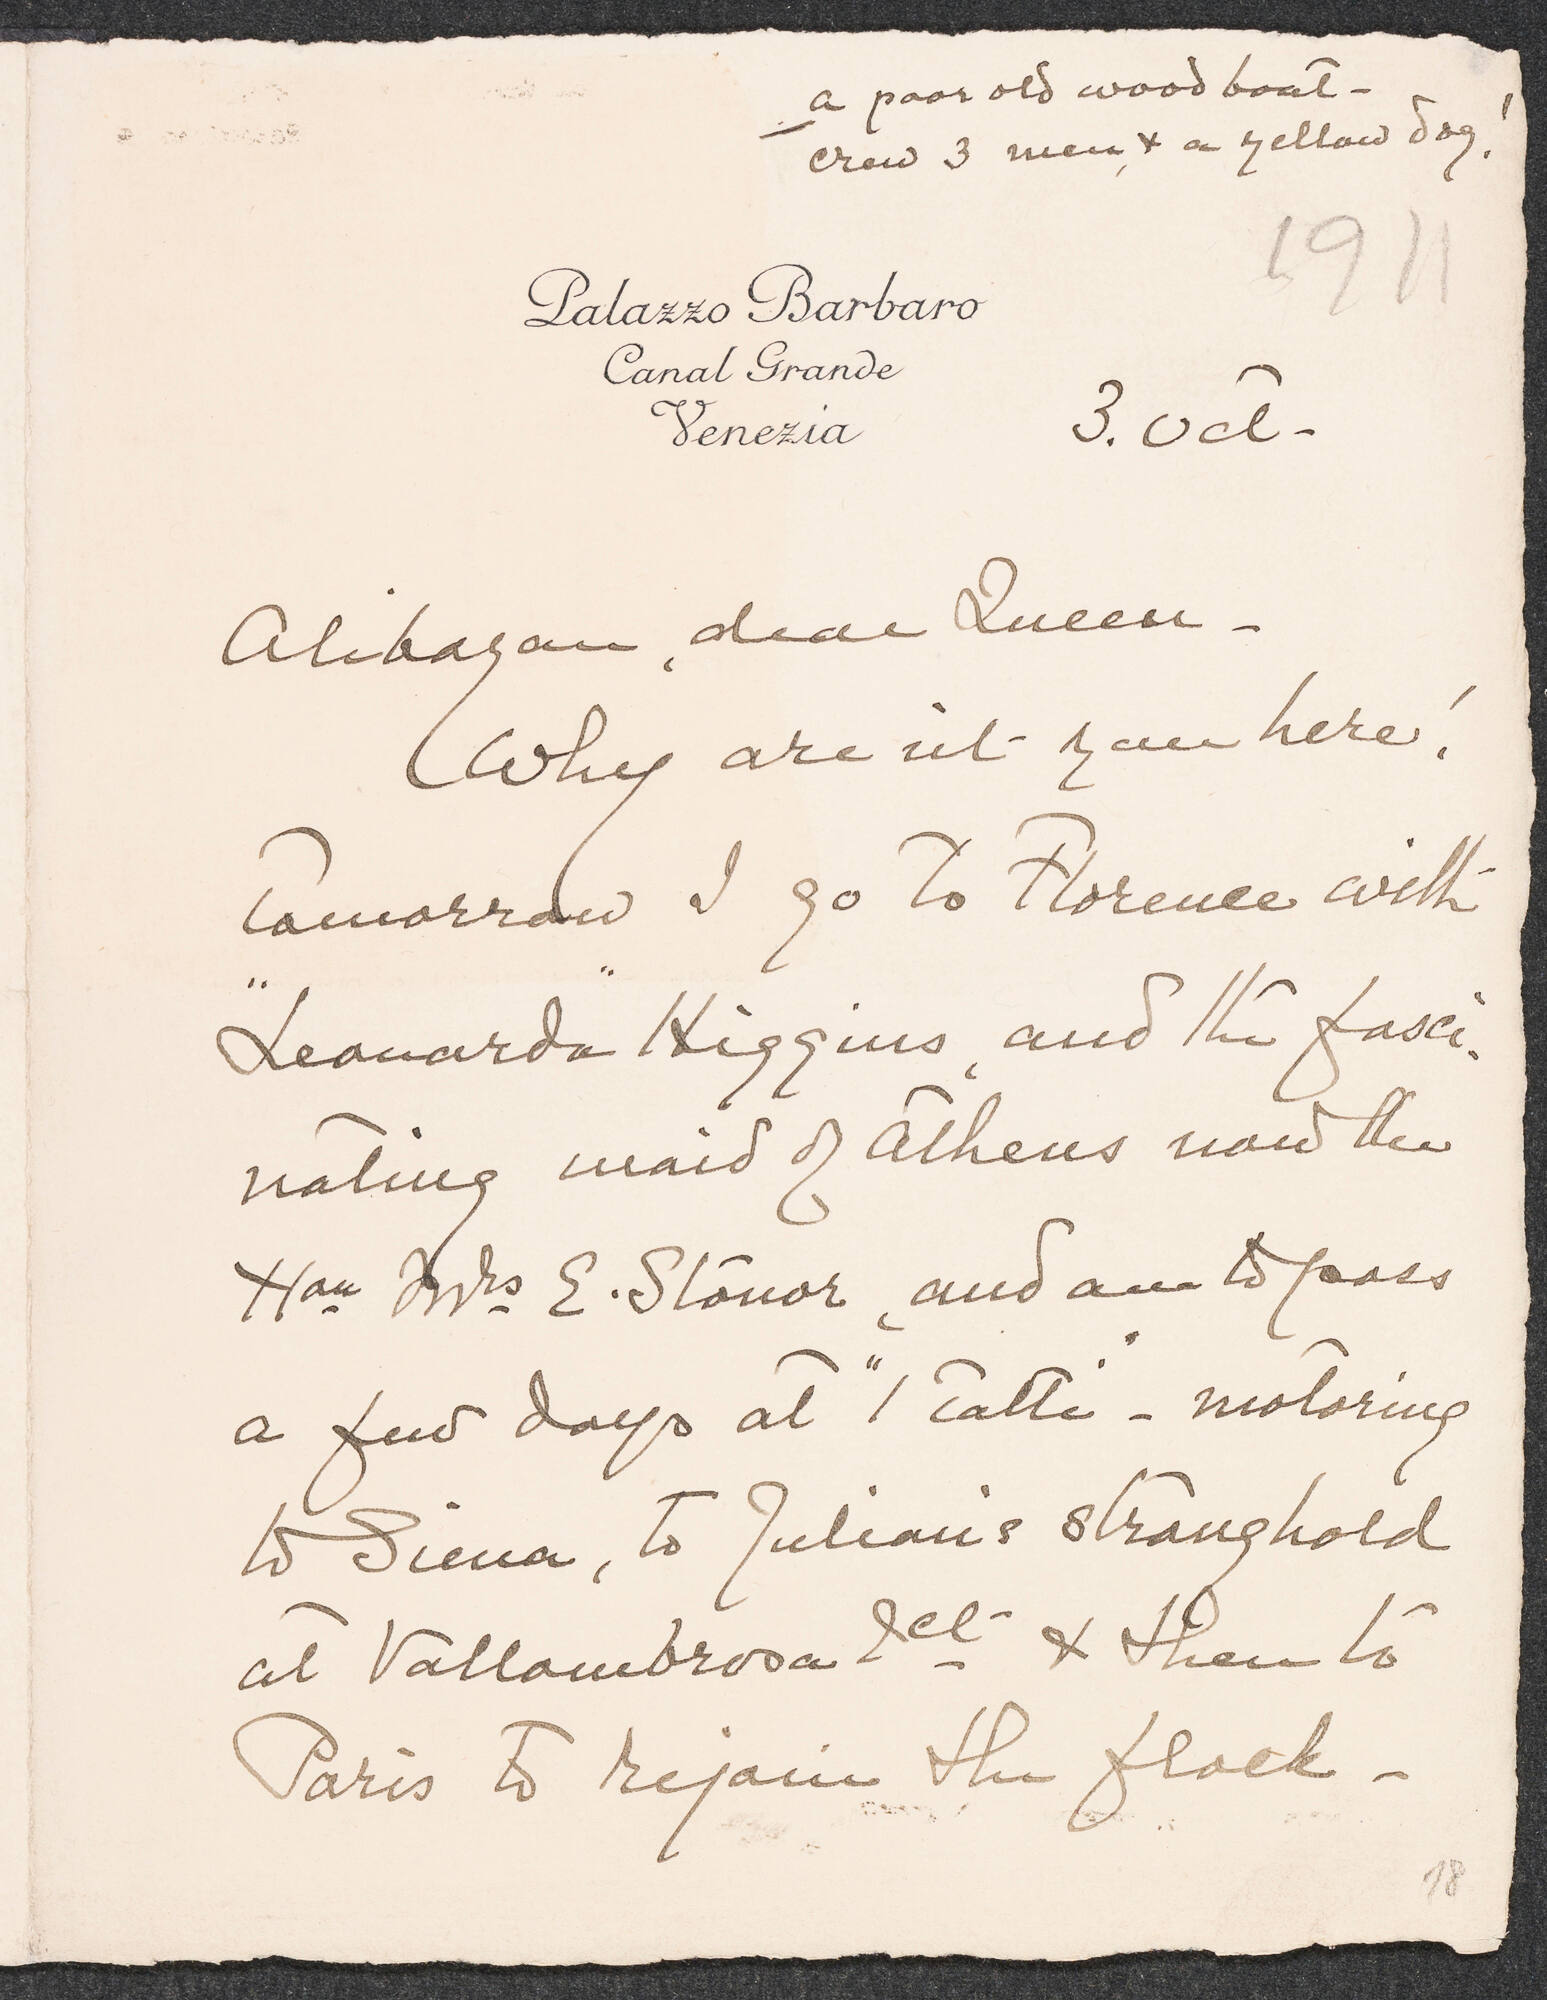 a poor old wood boat -
crew 3 men, & a yellow dog!
1911
Palazzo Barbaro
Canal Grande
Venezia
3. Oct -
Alibazan, dear Queen -
Why are n't you here!
Tomorrow I go to Florence with
"Leonardo" Higgins, and the fasci-
nating maid of Athens now the
Hon Mrs E. Stonor, and am to pass
a few days at "I Tatti" - motoring
to Siena, to Julian's stronghold
at Vallombrosa & then to
Paris to rejoin the flock -
18